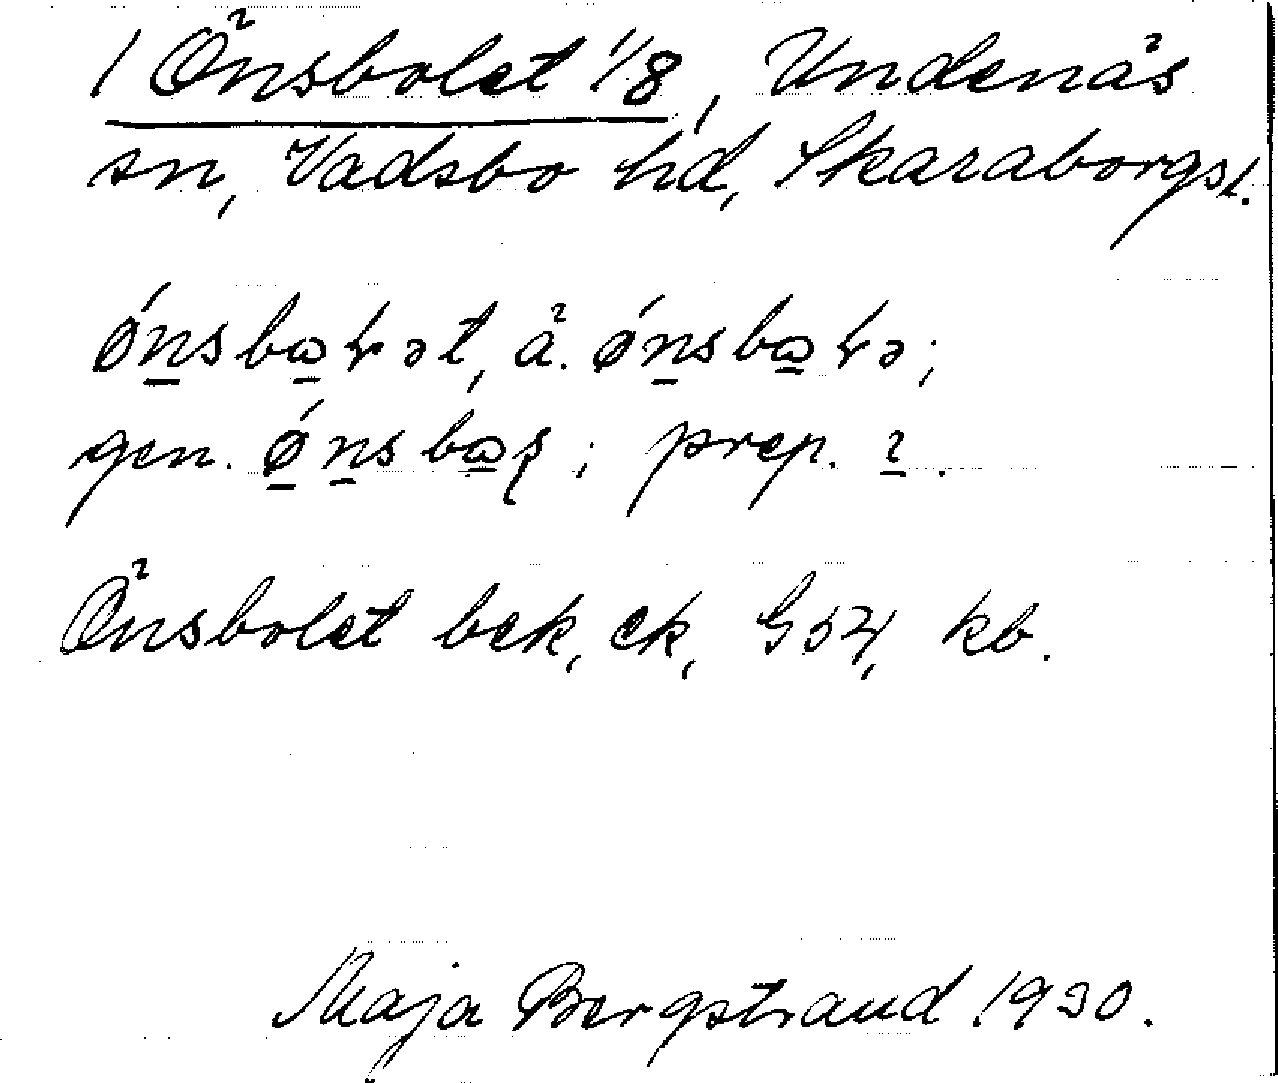 1 Önsbolet 1/8, Undenäs
sn, Vadsbo hd, Skaraborgs l.
ǿnsbɷłət, ä. ǿnsbɷłə;
gen. ǿnsbɷʂ; prep. ɩ.
Önsbolet bek, ek, G54, kb.
Maja Bergstrand 1930.